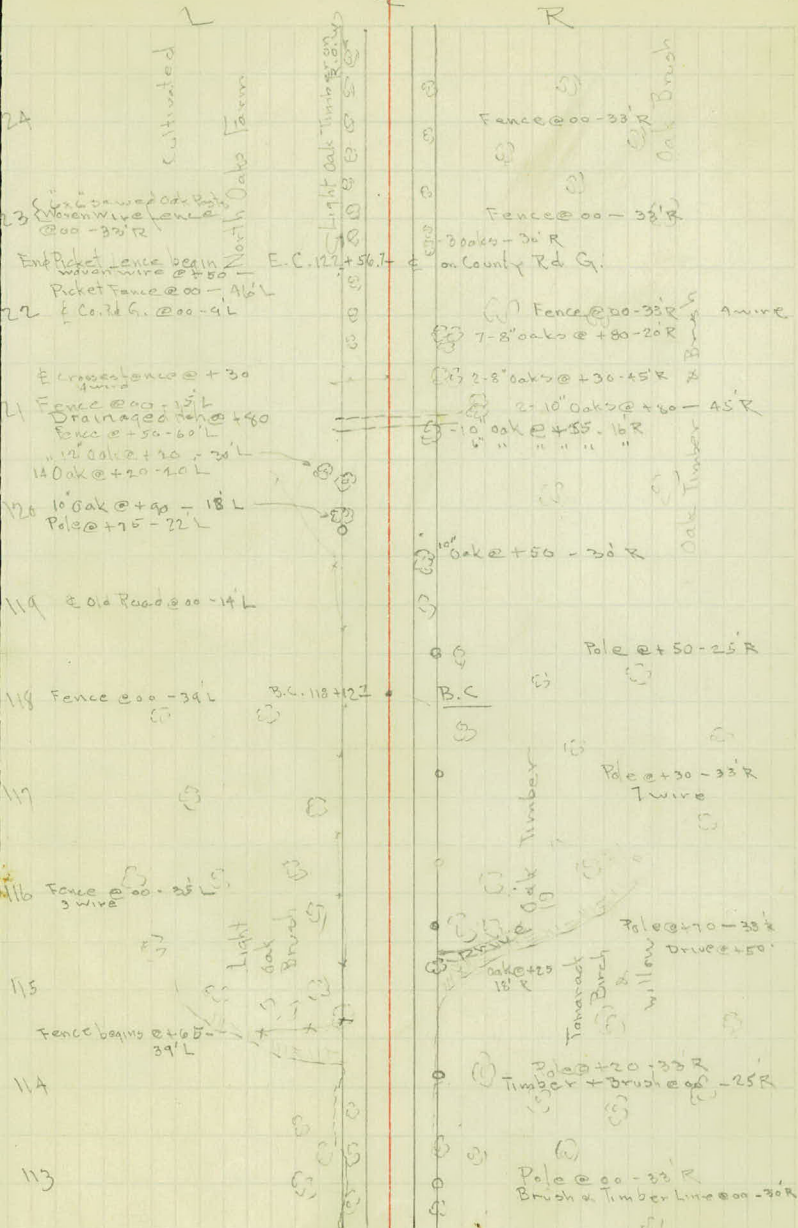 L
R
Cultivated
North Oaks Farm
Light Oak Timber on R.O.W.
Oak Brush
24
Fence @ 00 - 33' R
23
Woven wire fence
@ 00 - 33' R
Fence @ 00 - 33' R
3 oaks - 30' R
End Picket Fence begin
woven wire @ +50
E.C. 122+56.7
on County Rd G.
Picket Fence @ 00 - 46' L
22
℄ Co. Rd G. @ 00 - 9' L
Fence @ 00 - 33' R
4 wire
7-8" oaks @ +80 - 20' R
℄ cross fence @ +30
4 wire
2-8" oaks @ +30 - 45' R
21
Fence @ 00 - 15' L
Drainage @ +80
2-10" Oaks @ +80 - 45' R
Fence @ +50 - 60' L
10" oak @ +55 - 16' R
6" " " " "
12" Oak @ +20 - 20' L
14 Oak @ +20 - 20 L
Oak Timber & Brush
120
10" Oak @ +90 - 18' L
Pole @ +75 - 22' L
10" Oak @ +50 - 30' R
119
℄ Old Road @ 00 - 14' L
Pole @ +50 - 25' R
118
Fence @ 00 - 39' L
B.C. 118+12.7
B.C
Pole @ +30 - 33' R
7 wire
117
Oak Timber
116
Fence @ 00 - 35' L
3 wire
Light Oak Brush
Pole @ +70 - 33' R
Drive @ +50
Drive
oak @ +25
18' R
Tamarack Birch & Willow
115
Fence begins @ +65 -
39' L
Pole @ +20 - 33' R
Timber + Brush edge - 25' R
114
113
Pole @ 00 - 33' R
Brush & Timber Line @ 00 - 30' R